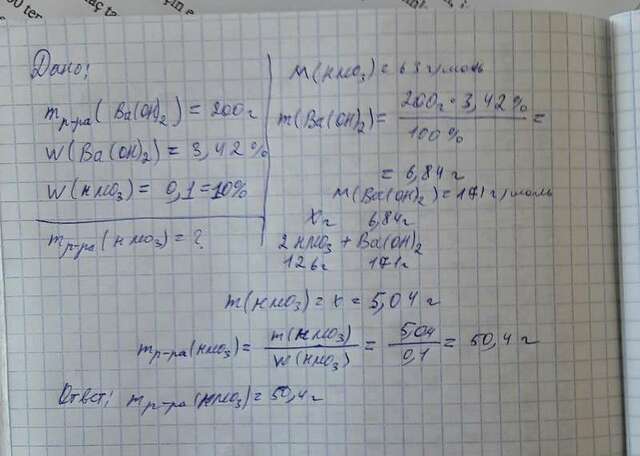 Дано:
m р-ра (Ba(OH)₂) = 200г
W(Ba(OH)₂) = 3,42%
W(HNO₃) = 0,1=10%
m р-ра (HNO₃) = ?
M(HNO₃) = 63 г/моль
m(Ba(OH)₂) = 200г · 3,42% / 100% =
= 6,84 г
M(Ba(OH)₂) = 171 г/моль
Xг 6,84г
2HNO₃ + Ba(OH)₂
126г 171г
m(HNO₃) = x = 5,04 г
m р-ра (HNO₃) = m(HNO₃) / W(HNO₃) = 504 / 0,1 = 50,4 г
Ответ: m р-ра (HNO₃) = 50,4г